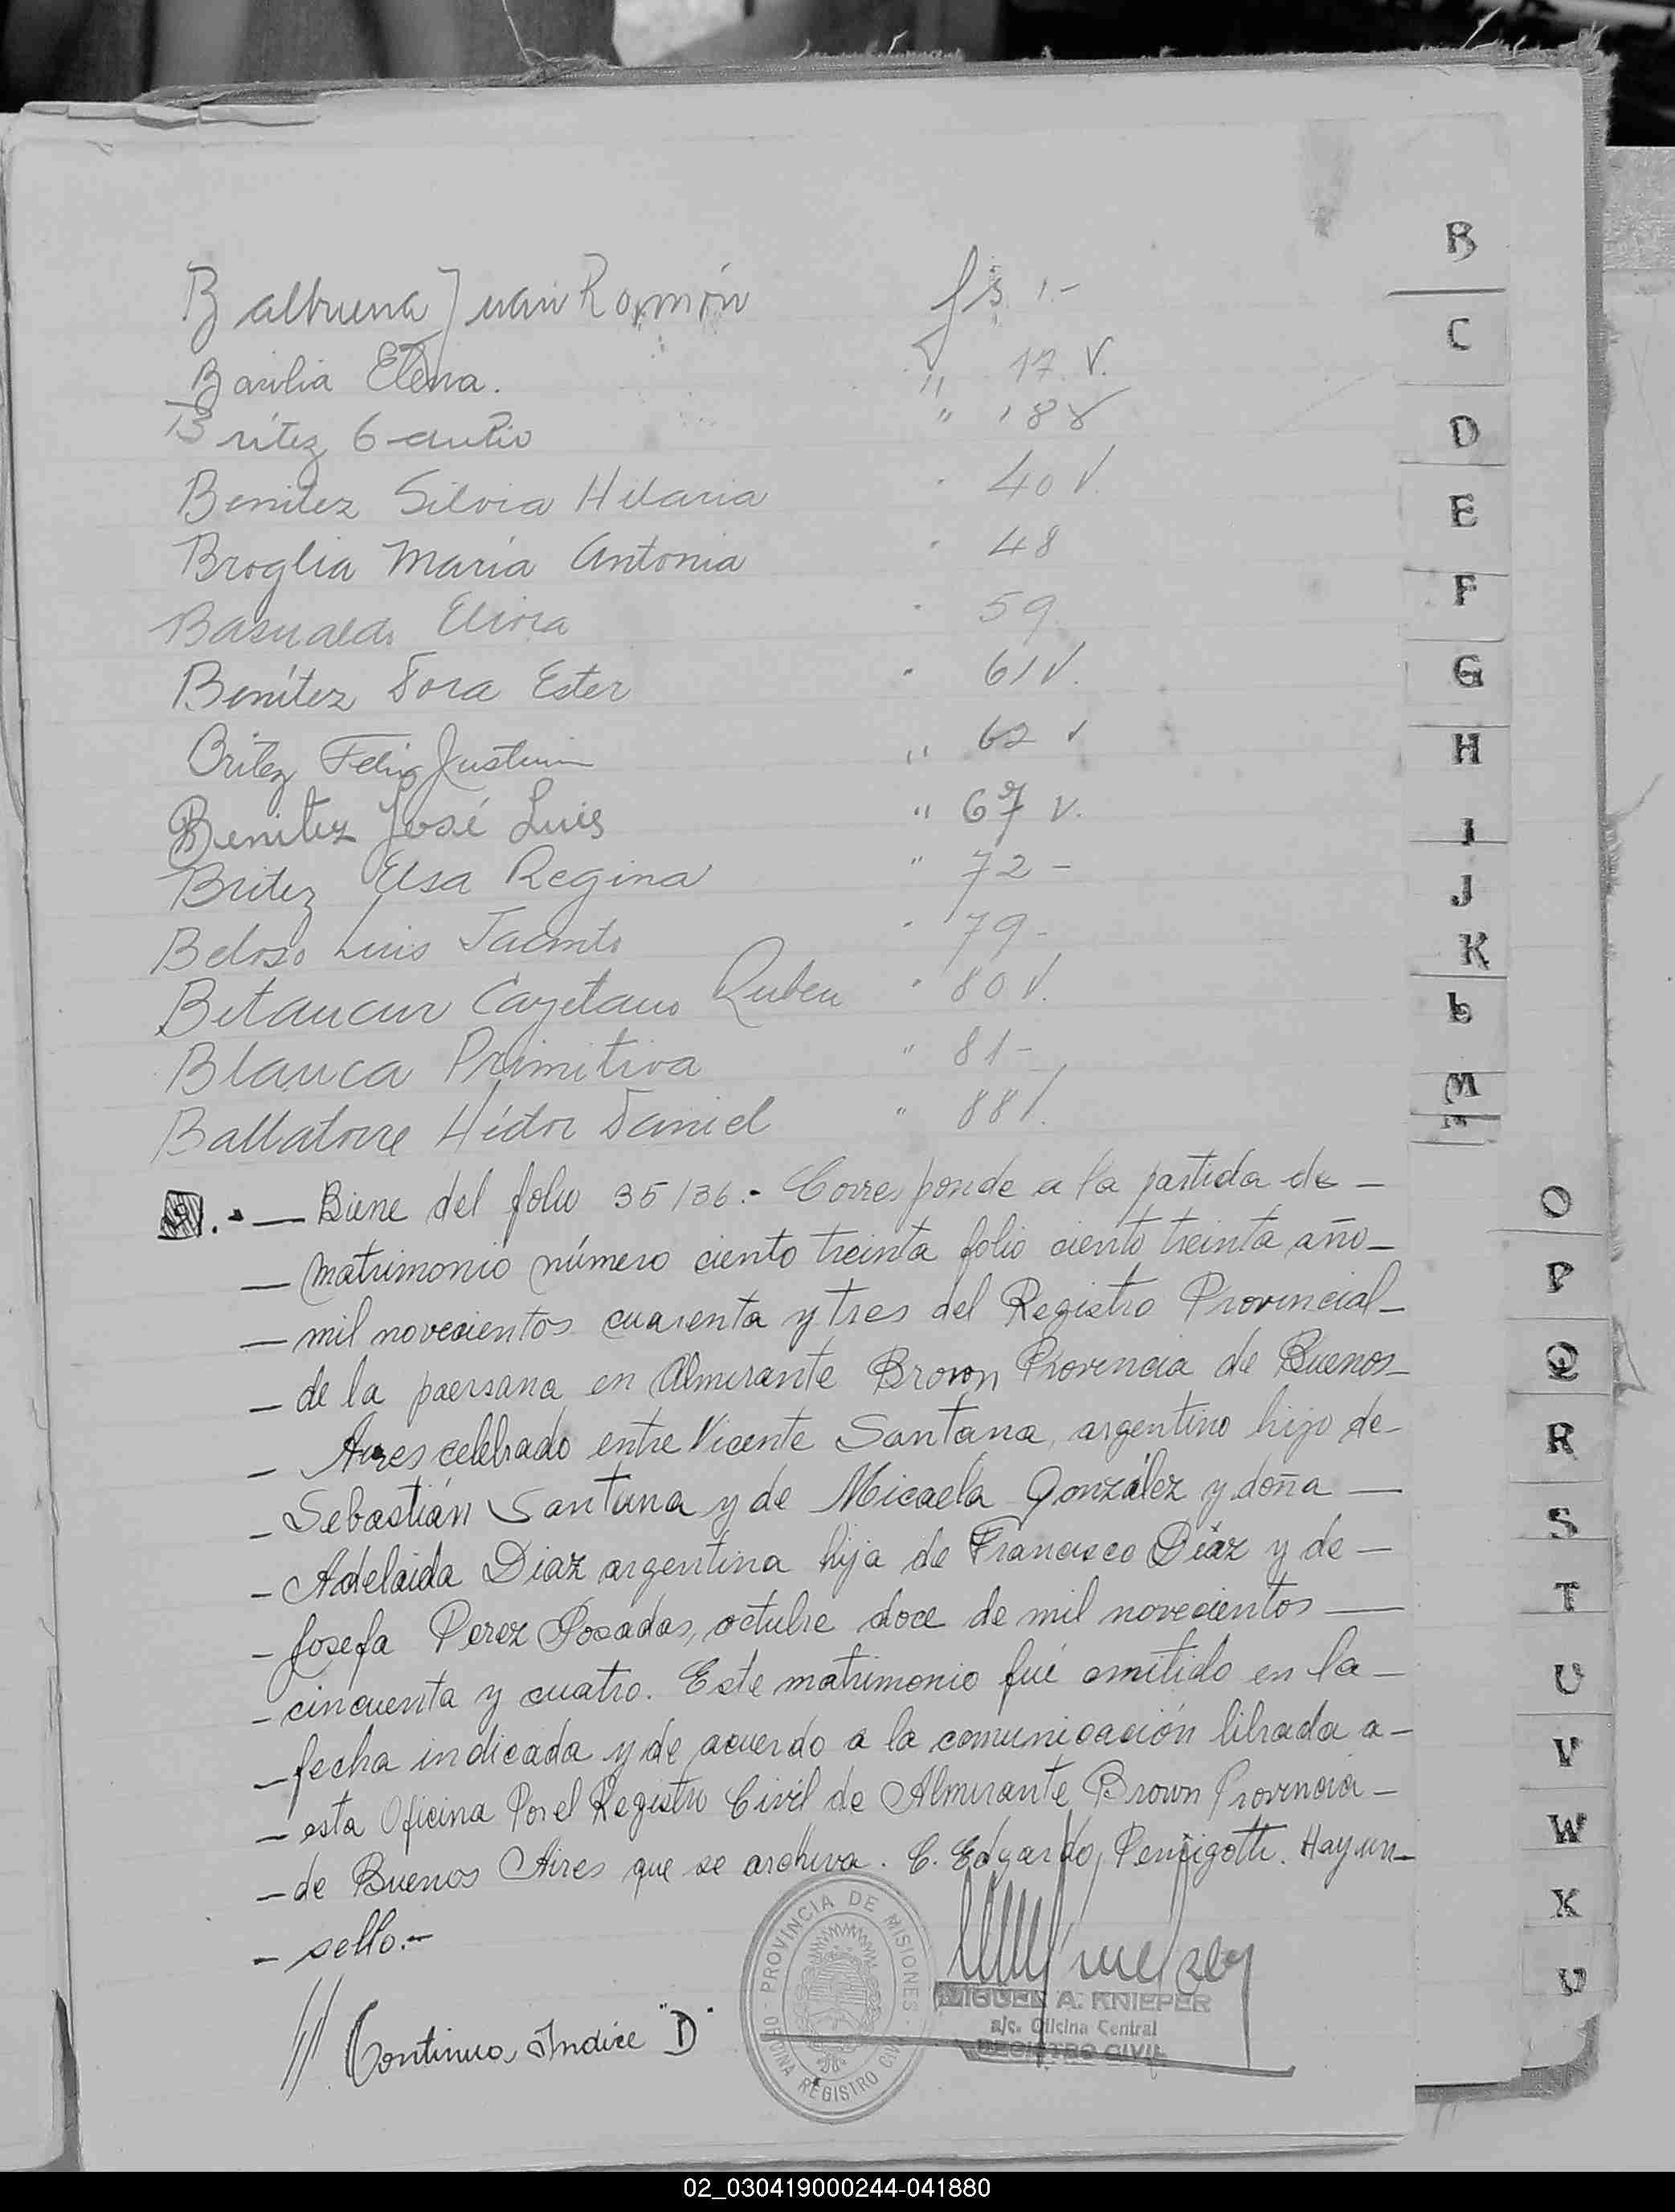 B
C
D
E
F
G
H
I
J
K
L
M
O
P
Q
R
S
T
U
V
W
X
Balbuena Juan Ramón fs 1.-
Elena. " 17 V.
Britez " 18 V
Benitez Silvia Hilaria " 40 V.
Broglia Maria Antonia " 48
Basualdo Elvira " 59
Benítez Dora Ester " 61 V.
Britez Felix Justin " 62 V
Benitez José Luis " 67 V.
Britez Elsa Regina " 72 -
Beloso Luis Jacinto " 79 -
Betancur Cayetano Ruben " 80 V.
Blanca Primitiva " 81 -
Ballatorre Héctor Daniel " 88 V.
.- — Biene del folio 35/36.- Corresponde a la partida de —
— matrimonio número ciento treinta folio ciento treinta año —
— mil novecientos cuarenta y tres del Registro Provincial —
— de la paersana en Almirante Brown Provencia de Buenos —
— Aires celebrado entre Vicente Santana, argentino hijo de —
— Sebastián Santana y de Micaela González y doña —
— Adelaida Diaz argentina hija de Francisco Díaz y de —
— Josefa Perez Posadas, octubre doce de mil novecientos —
— cincuenta y cuatro. Este matrimonio fué omitido en la —
— fecha indicada y de acuerdo a la comunicación librada a —
— esta Oficina Por el Registro Civil de Almirante Brown Provincia —
— de Buenos Aires que se archiva. C. Edgardo. Hay un —
— sello.-
// Continua Indice "D"
PROVINCIA DE MISIONES
OFICINA REGISTRO CIVIL
MIGUEL A. KNIEPER
a/c. Oficina Central
REGISTRO CIVIL
02_030419000244-041880